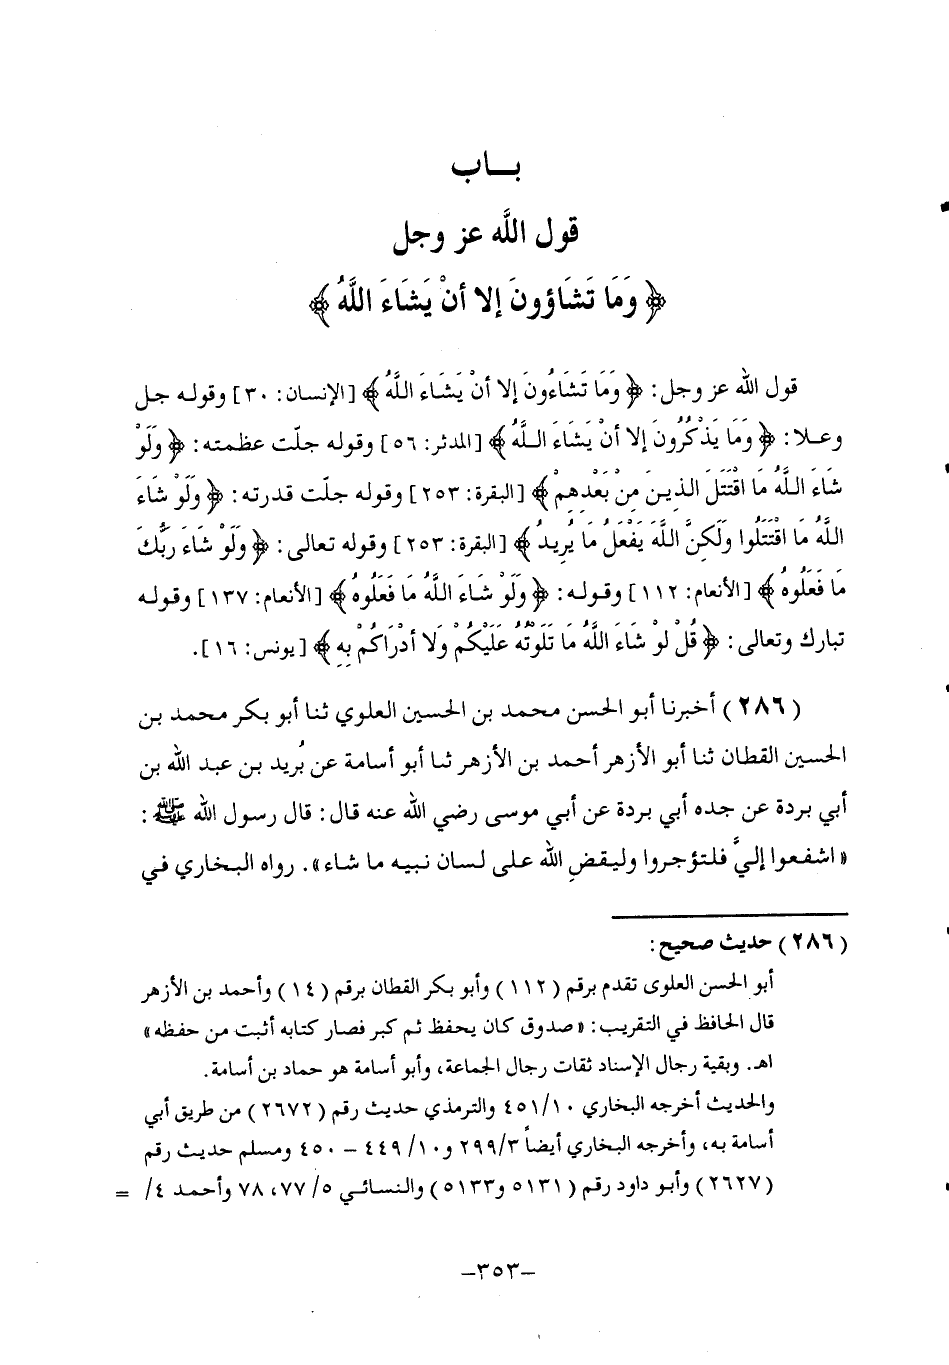 بـــاب
قول اللَّه عز وجل
﴿ وَمَا تَشَاؤونَ إلا أنْ يَشَاءَ اللَّهُ ﴾
قول الله عز وجل: ﴿ وَمَا تَشَاءُونَ إلا أنْ يَشَاءَ اللَّهُ ﴾ [الإنسان: ٣٠] وقوله جل
وعلا: ﴿ وَمَا يَذْكُرُونَ إلا أنْ يَشَاءَ اللَّهُ ﴾ [المدثر: ٥٦] وقوله جلّت عظمته: ﴿ وَلَوْ
شَاءَ اللَّهُ مَا اقْتَتَلَ الذينَ مِنْ بَعْدِهِمْ ﴾ [البقرة: ٢٥٣] وقوله جلّت قدرته: ﴿ وَلَوْ شَاءَ
اللَّهُ مَا اقْتَتَلُوا وَلَكِنَّ اللَّهَ يَفْعَلُ مَا يُرِيدُ ﴾ [البقرة: ٢٥٣] وقوله تعالى: ﴿ وَلَوْ شَاءَ رَبُّكَ
مَا فَعَلُوهُ ﴾ [الأنعام: ١١٢] وقوله: ﴿ وَلَوْ شَاءَ اللَّهُ مَا فَعَلُوهُ ﴾ [الأنعام: ١٣٧] وقوله
تبارك وتعالى: ﴿ قُلْ لوْ شَاءَ اللَّهُ مَا تَلَوْتُهُ عَلَيْكُمْ وَلَا أدْرَاكُمْ بِهِ ﴾ [يونس: ١٦].
(٢٨٦) أخبرنا أبو الحسن محمد بن الحسين العلوي ثنا أبو بكر محمد بن
الحسين القطان ثنا أبو الأزهر أحمد بن الأزهر ثنا أبو أسامة عن بُريد بن عبد الله بن
أبي بردة عن جده أبي بردة عن أبي موسى رضي الله عنه قال: قال رسول الله ﷺ:
«اشفعوا إليَّ فلتؤجروا وليقضِ الله على لسان نبيه ما شاء». رواه البخاري في
(٢٨٦) حديث صحيح:
أبو الحسن العلوى تقدم برقم (١١٢) وأبو بكر القطان برقم (١٤) وأحمد بن الأزهر
قال الحافظ في التقريب: «صدوق كان يحفظ ثم كبر فصار كتابه أثبت من حفظه»
اهـ. وبقية رجال الإسناد ثقات رجال الجماعة، وأبو أسامة هو حماد بن أسامة.
والحديث أخرجه البخاري ٤٥١/١٠ والترمذي حديث رقم (٢٦٧٢) من طريق أبي
أسامة به، وأخرجه البخاري أيضاً ٢٩٩/٣ و١٠/ ٤٤٩ – ٤٥٠ ومسلم حديث رقم
(٢٦٢٧) وأبو داود رقم (٥١٣١ و٥١٣٣) والنسائي ٥/ ٧٧، ٧٨ وأحمد ٤/ =
–٣٥٣–